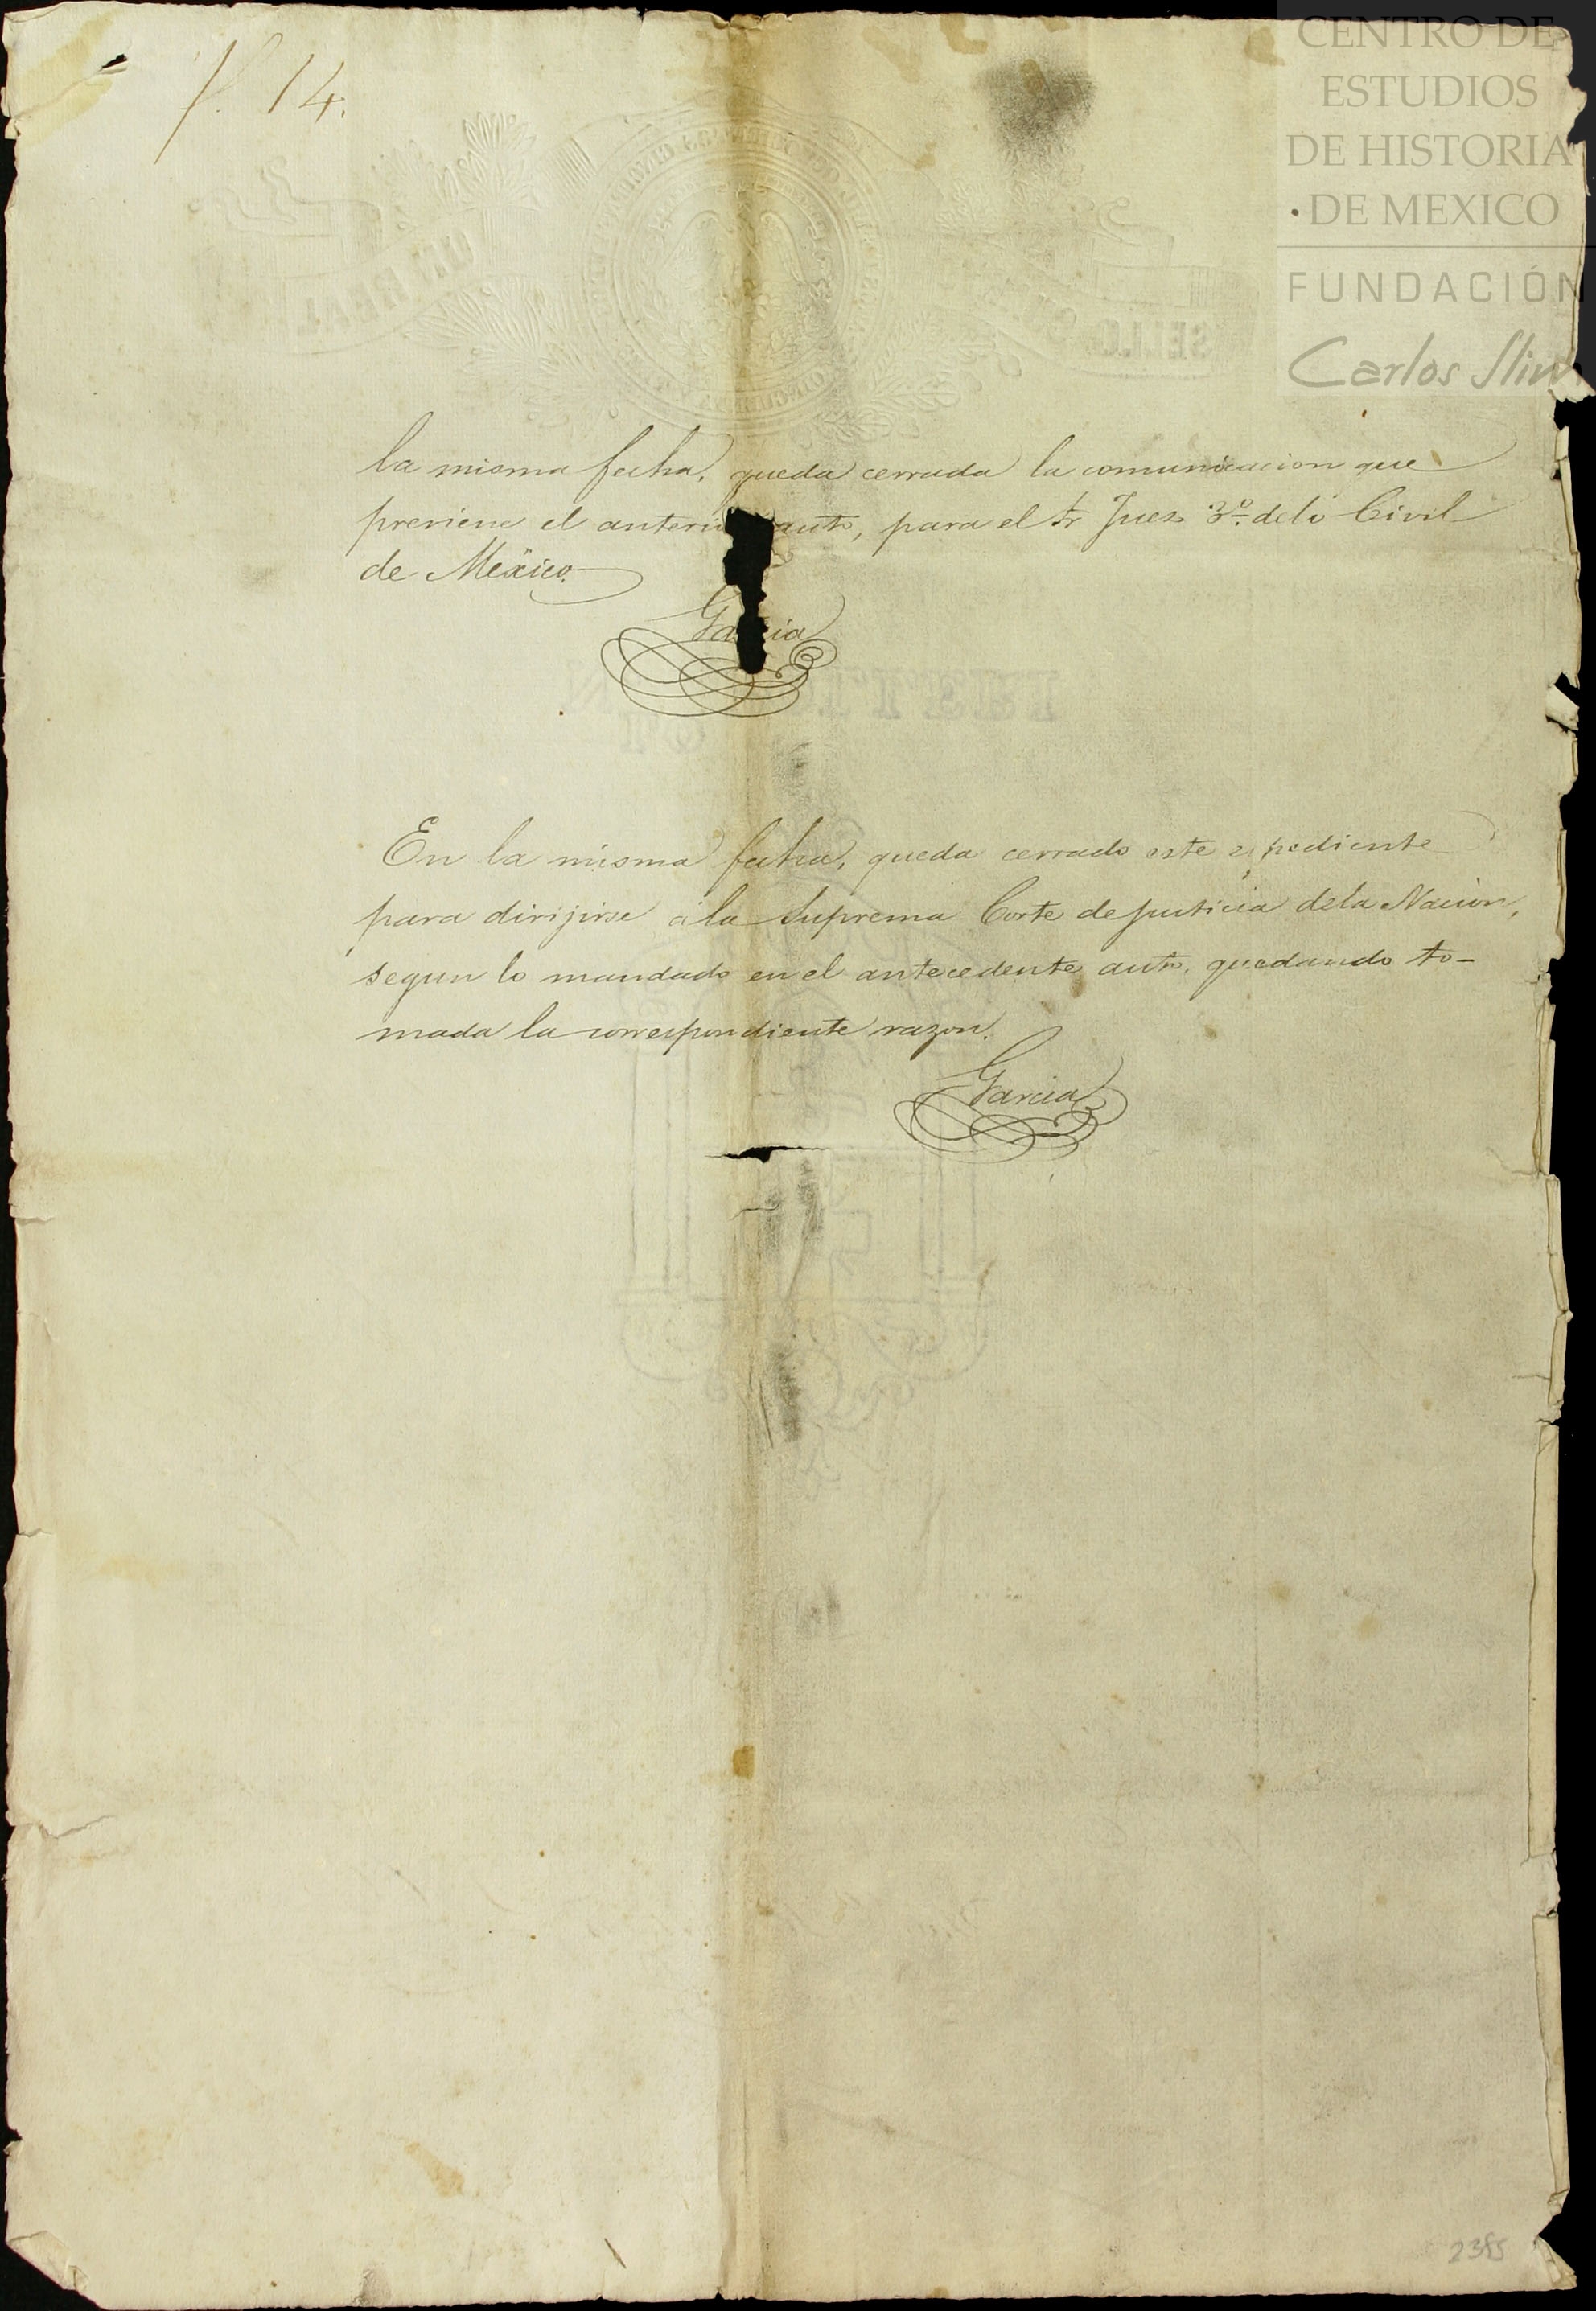 f. 14.
CENTRO DE
ESTUDIOS
DE HISTORIA
DE MEXICO
FUNDACIÓN
Carlos Slim
la misma fecha, queda cerrada la comunicacion que
previene el anterio auto, para el Sr Juez 3º de lo Civil
de México.
Garcia
En la misma fecha, queda cerrado este espediente
para dirijirse á la Suprema Corte de justicia de la Nacion,
segun lo mandado en el antecedente auto, quedando to-
mada la correspondiente razon.
Garcia
2385